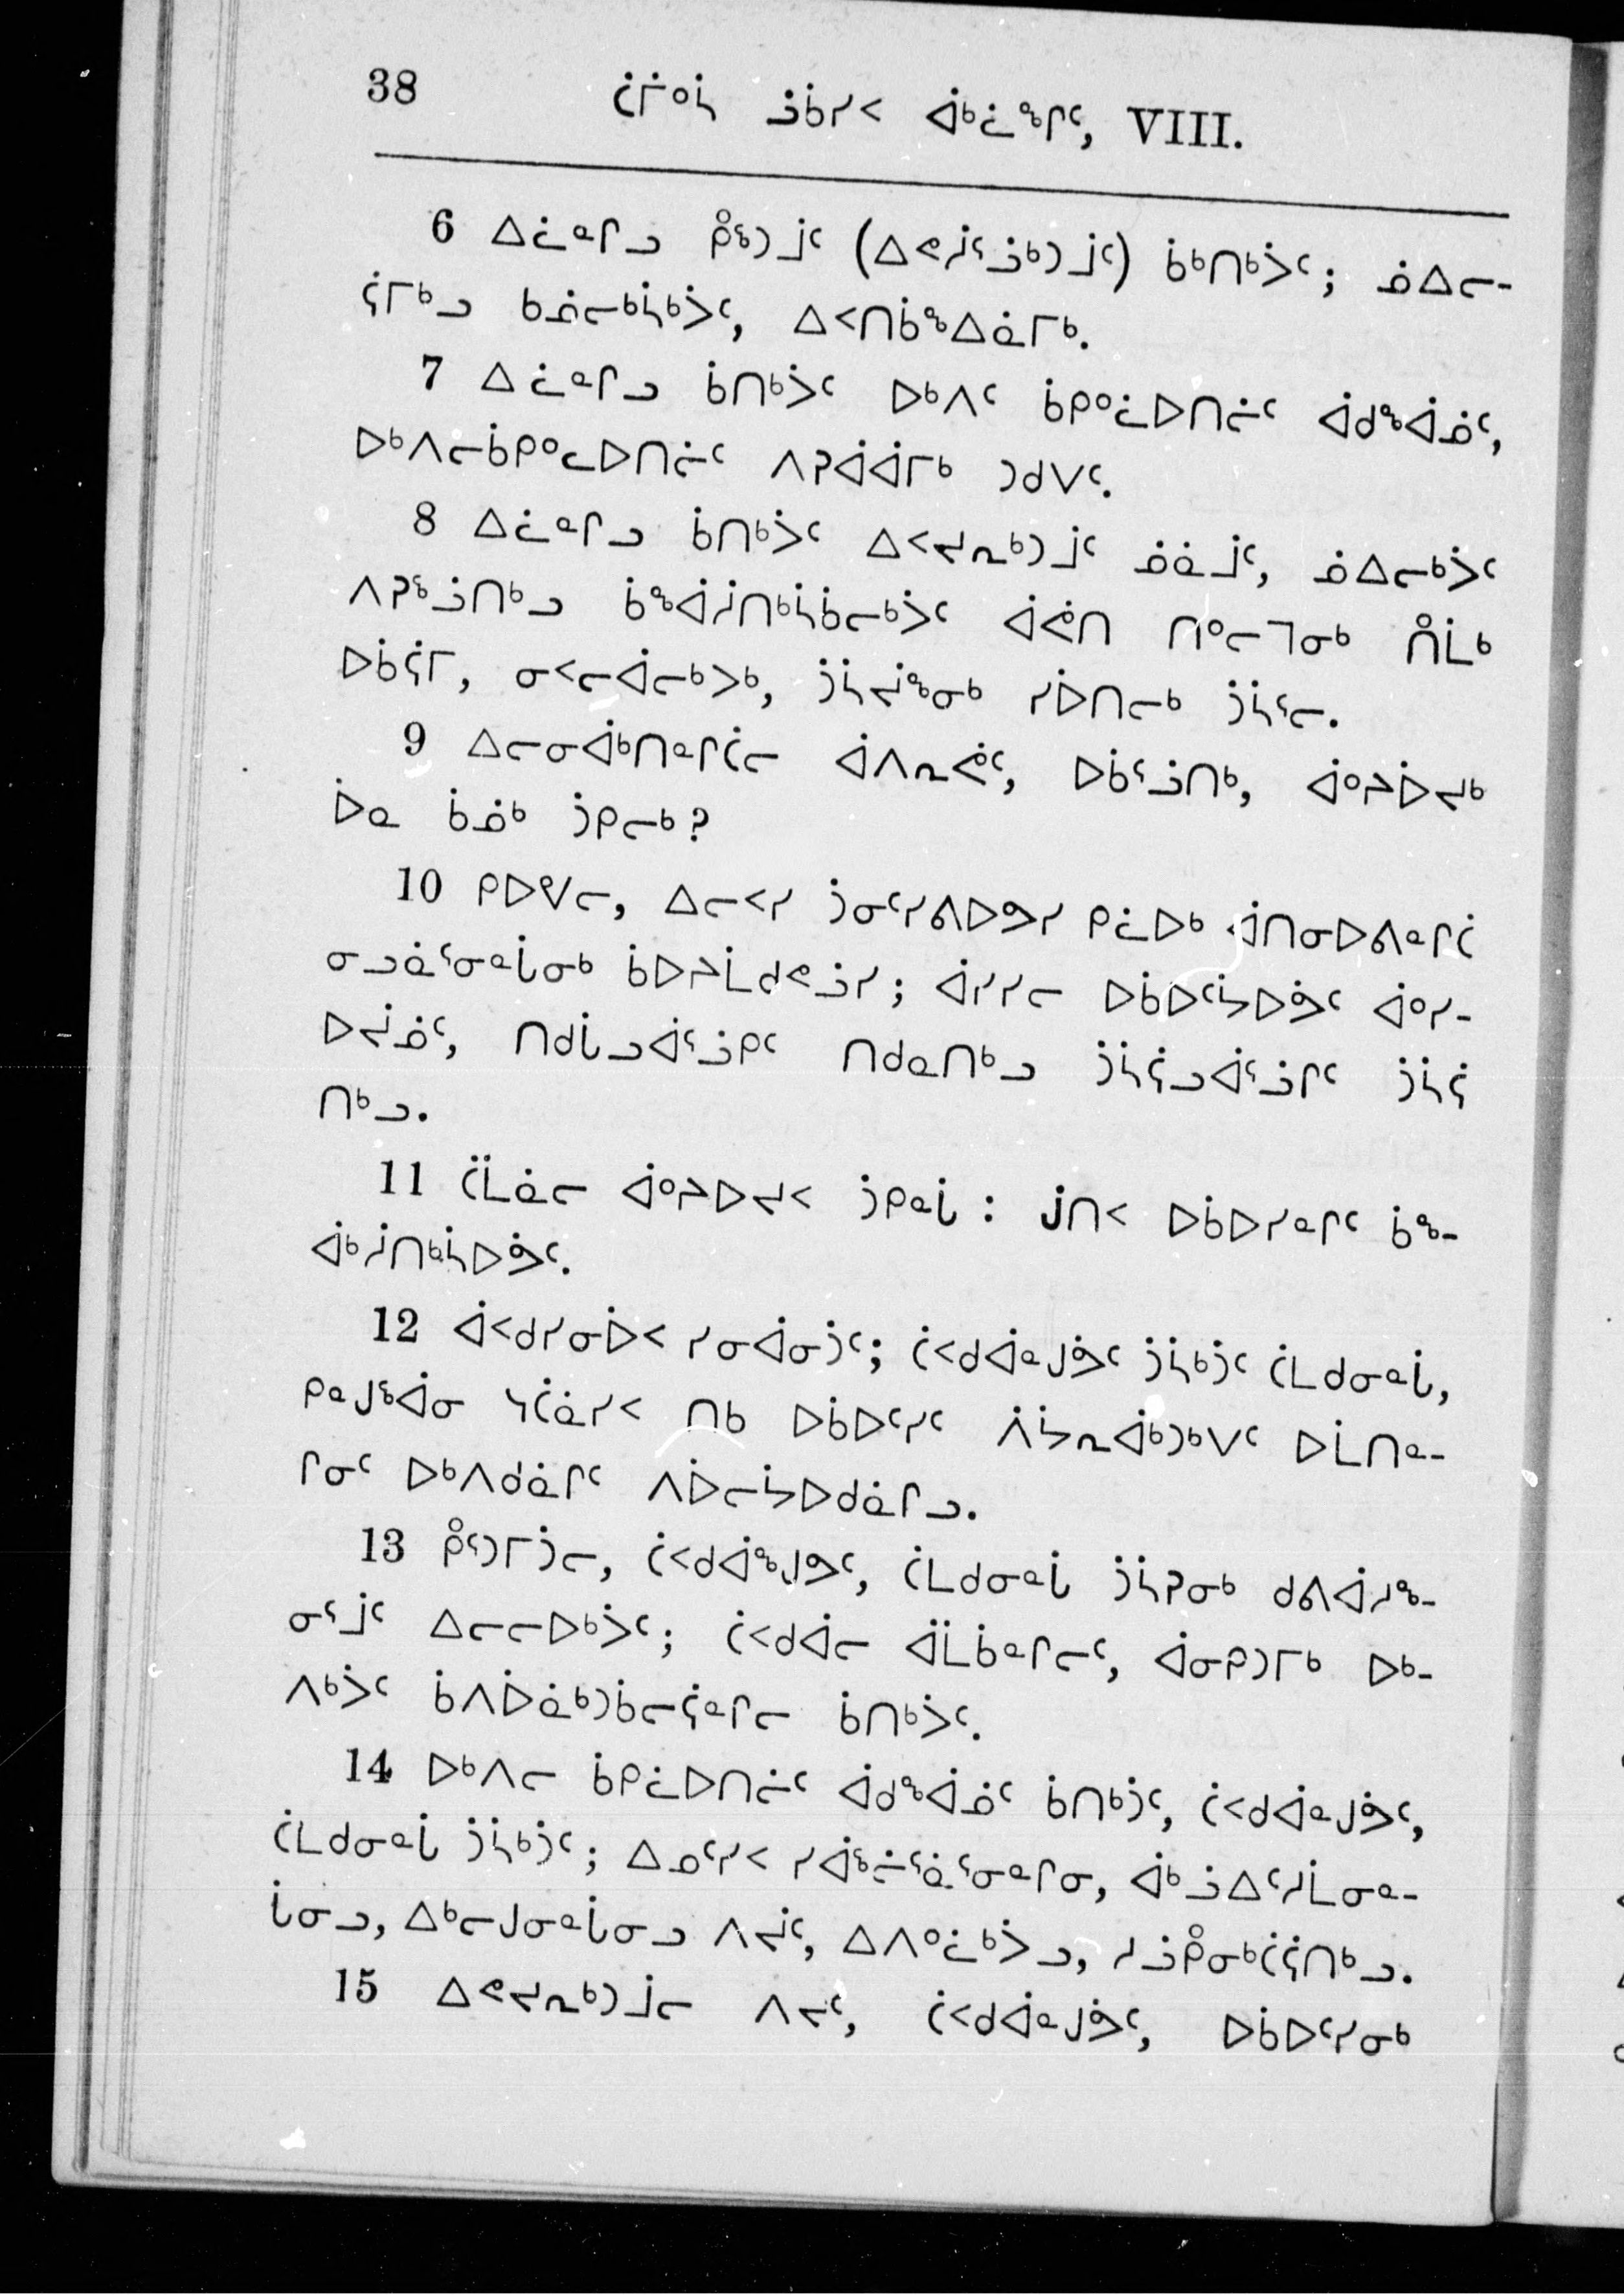 38 ᑖᒦᐤᓵ ᓘᑳᓯᑉ ᐋᒃᓛᖕᒋᑦ, VIII.
6 ᐃᓛᓐᒋᓗ ᑮᖅᑐᒨᑦ (ᐃᕙᓲᕐᓘᒃᑐᒨᑦ) ᑳᒃᑎᒃᐴᑦ; ᓅᐃᓕ-
ᕌᒥᒃᓗ ᑲᓅᓕᒃᓵᒃᐴᑦ, ᐃᑉᑎᑳᖕᐃᓈᒥᒃ.
7 ᐃᓛᓐᒋᓗ ᑳᑎᒃᐴᑦ ᐅᒃᐱᑦ ᑳᑭᐤᓛᐅᑎᓖᑦ ᐋᑯᖕᐋᓅᑦ,
ᐅᒃᐱᓕᑳᑭᐤᓚᐅᑎᓖᑦ ᐱᕈᐋᐋᒥᒃ ᑐᑯᐯᑦ.
8 ᐃᓛᓐᒋᓗ ᑳᑎᒃᐴᑦ ᐃᑉᔪᕆᒃᑐᒨᑦ ᓅᓈᒨᑦ, ᓅᐃᓕᒃᐴᑦ
ᐱᕈᖅᓘᑎᒃᓗ ᑳᖕᐋᓲᑎᒃᓵᑳᓕᒃᐴᑦ ᐋᕚᑎ ᑎᐤᓕᒣᓂᒃ ᑏᒫᒃ
ᐅᑳᕌᒥ, ᓂᑉᓕᐋᓕᒃᐳᒃ, ᑑᓵᔫᖕᓂᒃ ᓯᐆᑎᓕᒃ ᑑᓵᕐᓕ.
9 ᐃᓕᓂᐋᒃᑎᓐᒋᑖᓕ ᐋᐱᕆᕚᑦ, ᐅᑳᕐᓘᑎᒃ, ᐋᐤᔨᐆᔪᒃ
ᐆᓇ ᑳᓅᒃ ᑑᑭᓕᒃ?
10 ᑭᐅᕓᓕ, ᐃᓕᑉᓯ ᑑᓂᑦᓯᕕᐅᕗᓯ ᑭᓛᐅᒃ ᐋᑎᓂᐅᕕᓐᒋᑖ
ᓂᓗᓈᕐᓂᓐᖔᓂᒃ ᑳᐅᔨᒫᑯᕙᓘᓯ; ᐋᓯᓯᓕ ᐅᑳᐅᑦᔮᐅᕘᑦ ᐋᐤᓯ-
ᐅᔫᓅᑦ, ᑎᑯᖔᓗᐋᕐᓘᑭᑦ ᑎᑯᓇᑎᒃᓗ ᑑᓵᕌᓗᐋᕐᓘᒋᑦ ᑑᓵᕌ
ᑎᒃᓗ.
11 ᑖᒫᓈᓕ ᐋᐤᔨᐅᔪᑉ ᑑᑭᓐᖔ : ᒎᑎᑉ ᐅᑳᐅᓯᓐᒋᑦ ᑳᖕ-
ᐋᒃᓲᑎᒃᓵᐅᕘᑦ.
12 ᐋᑉᑯᓯᓂᐆᑉ ᓯᓂᐋᓂᑑᑦ; ᑖᑉᑯᐋᓐᖑᕘᑦ ᑑᓵᒃᑑᑦ ᑖᒪᑯᓂᓐᖔ,
ᑭᓇᒍᖅᐋᓂ ᓴᑖᓈᓯᑉ ᑎᑲ ᐅᑳᐅᑦᓯᑦ ᐲᔮᕆᐋᒃᑐᒃᐯᑦ ᐅᒫᑎᓐ-
ᒋᓂᑦ ᐅᒃᐱᑯᓈᒋᑦ ᐱᐆᓕᔮᐅᑯᓈᒋᓗ.
13 ᑮᕐᑐᒥᑑᓕ, ᑖᑉᑯᐋᖕᒍᕗᑦ, ᑖᒪᑯᓂᓐᖔ ᑑᓵᕈᓂᒃ ᑯᕕᐋᓱᖕ-
ᓂᕐᒨᑦ ᐃᓕᓕᐅᒃᐴᑦ; ᑖᑉᑯᐋᓕ ᐋᒫᑳᓐᒋᓕᑦ, ᐋᓂᑭᑐᒥᒃ ᐅᒃ-
ᐱᒃᐴᑦ ᑳᐱᐆᓈᒃᑐᑳᓕᕌᓐᒋᓕ ᑳᑎᒃᐴᑦ.
14 ᐅᒃᐱᓕ ᑳᑭᓛᐅᑎᓖᑦ ᐋᑯᖕᐋᓅᑦ ᑳᑎᒃᑑᑦ, ᑖᑉᑯᐋᓐᖑᕘᑦ,
ᑖᒪᑯᓂᓐᖔ ᑑᓵᒃᑑᑦ; ᐃᓄᑦᓯᑉ ᓯᐋᖅᓖᕐᓈᕐᓂᓐᒋᓂ, ᐋᒃᓘᐃᑦᓱᒫᓂᓐ-
ᖔᓂᓗ, ᐃᒃᓕᒍᓂᓐᖔᓂᓗ ᐱᔫᑦ, ᐃᐱᐤᓛᒃᐴᓗ, ᓱᓘᑮᓂᒃᑖᕌᑎᒃᓗ.
15 ᐃᕙᔪᕆᒃᑐᒨᓕ ᐱᔪᑦ, ᑖᑉᑯᐋᓐᖑᕘᑦ, ᐅᑳᐅᑦᓯᓂᒃ